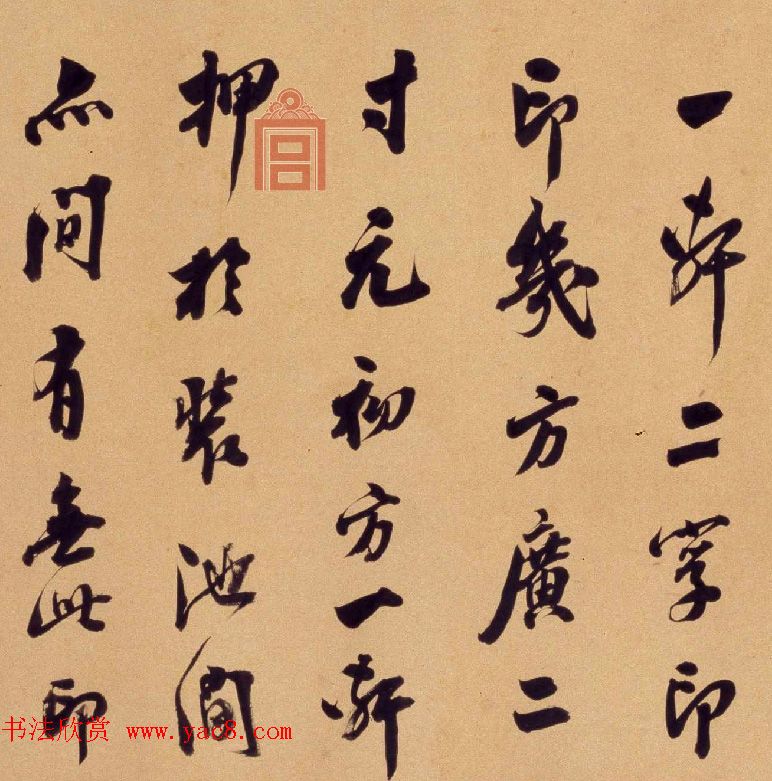 一軒二字印
印幾方廣二
寸元初方一軒
押於裝池間
亦間有無此印
书法欣赏 www.yac8.com